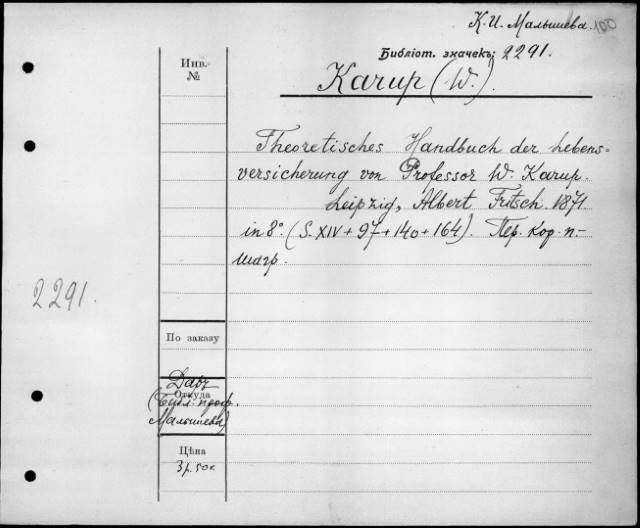 К. И. Малышева. 100
Библіот. значекъ: 2291.
Инв.
№
Karup (W.).
Theoretisches Handbuch der Lebens=
versicherung von Professor W. Karup.
Leipzig, Albert Fritsch. 1871
in 8°. (S. XIV + 97 + 140 + 164). Пер. кор. п-
шагр.
2291.
По заказу
Даръ
Откуда
(Библ. проф.
Малышева)
Цѣна
3 р. 50 к